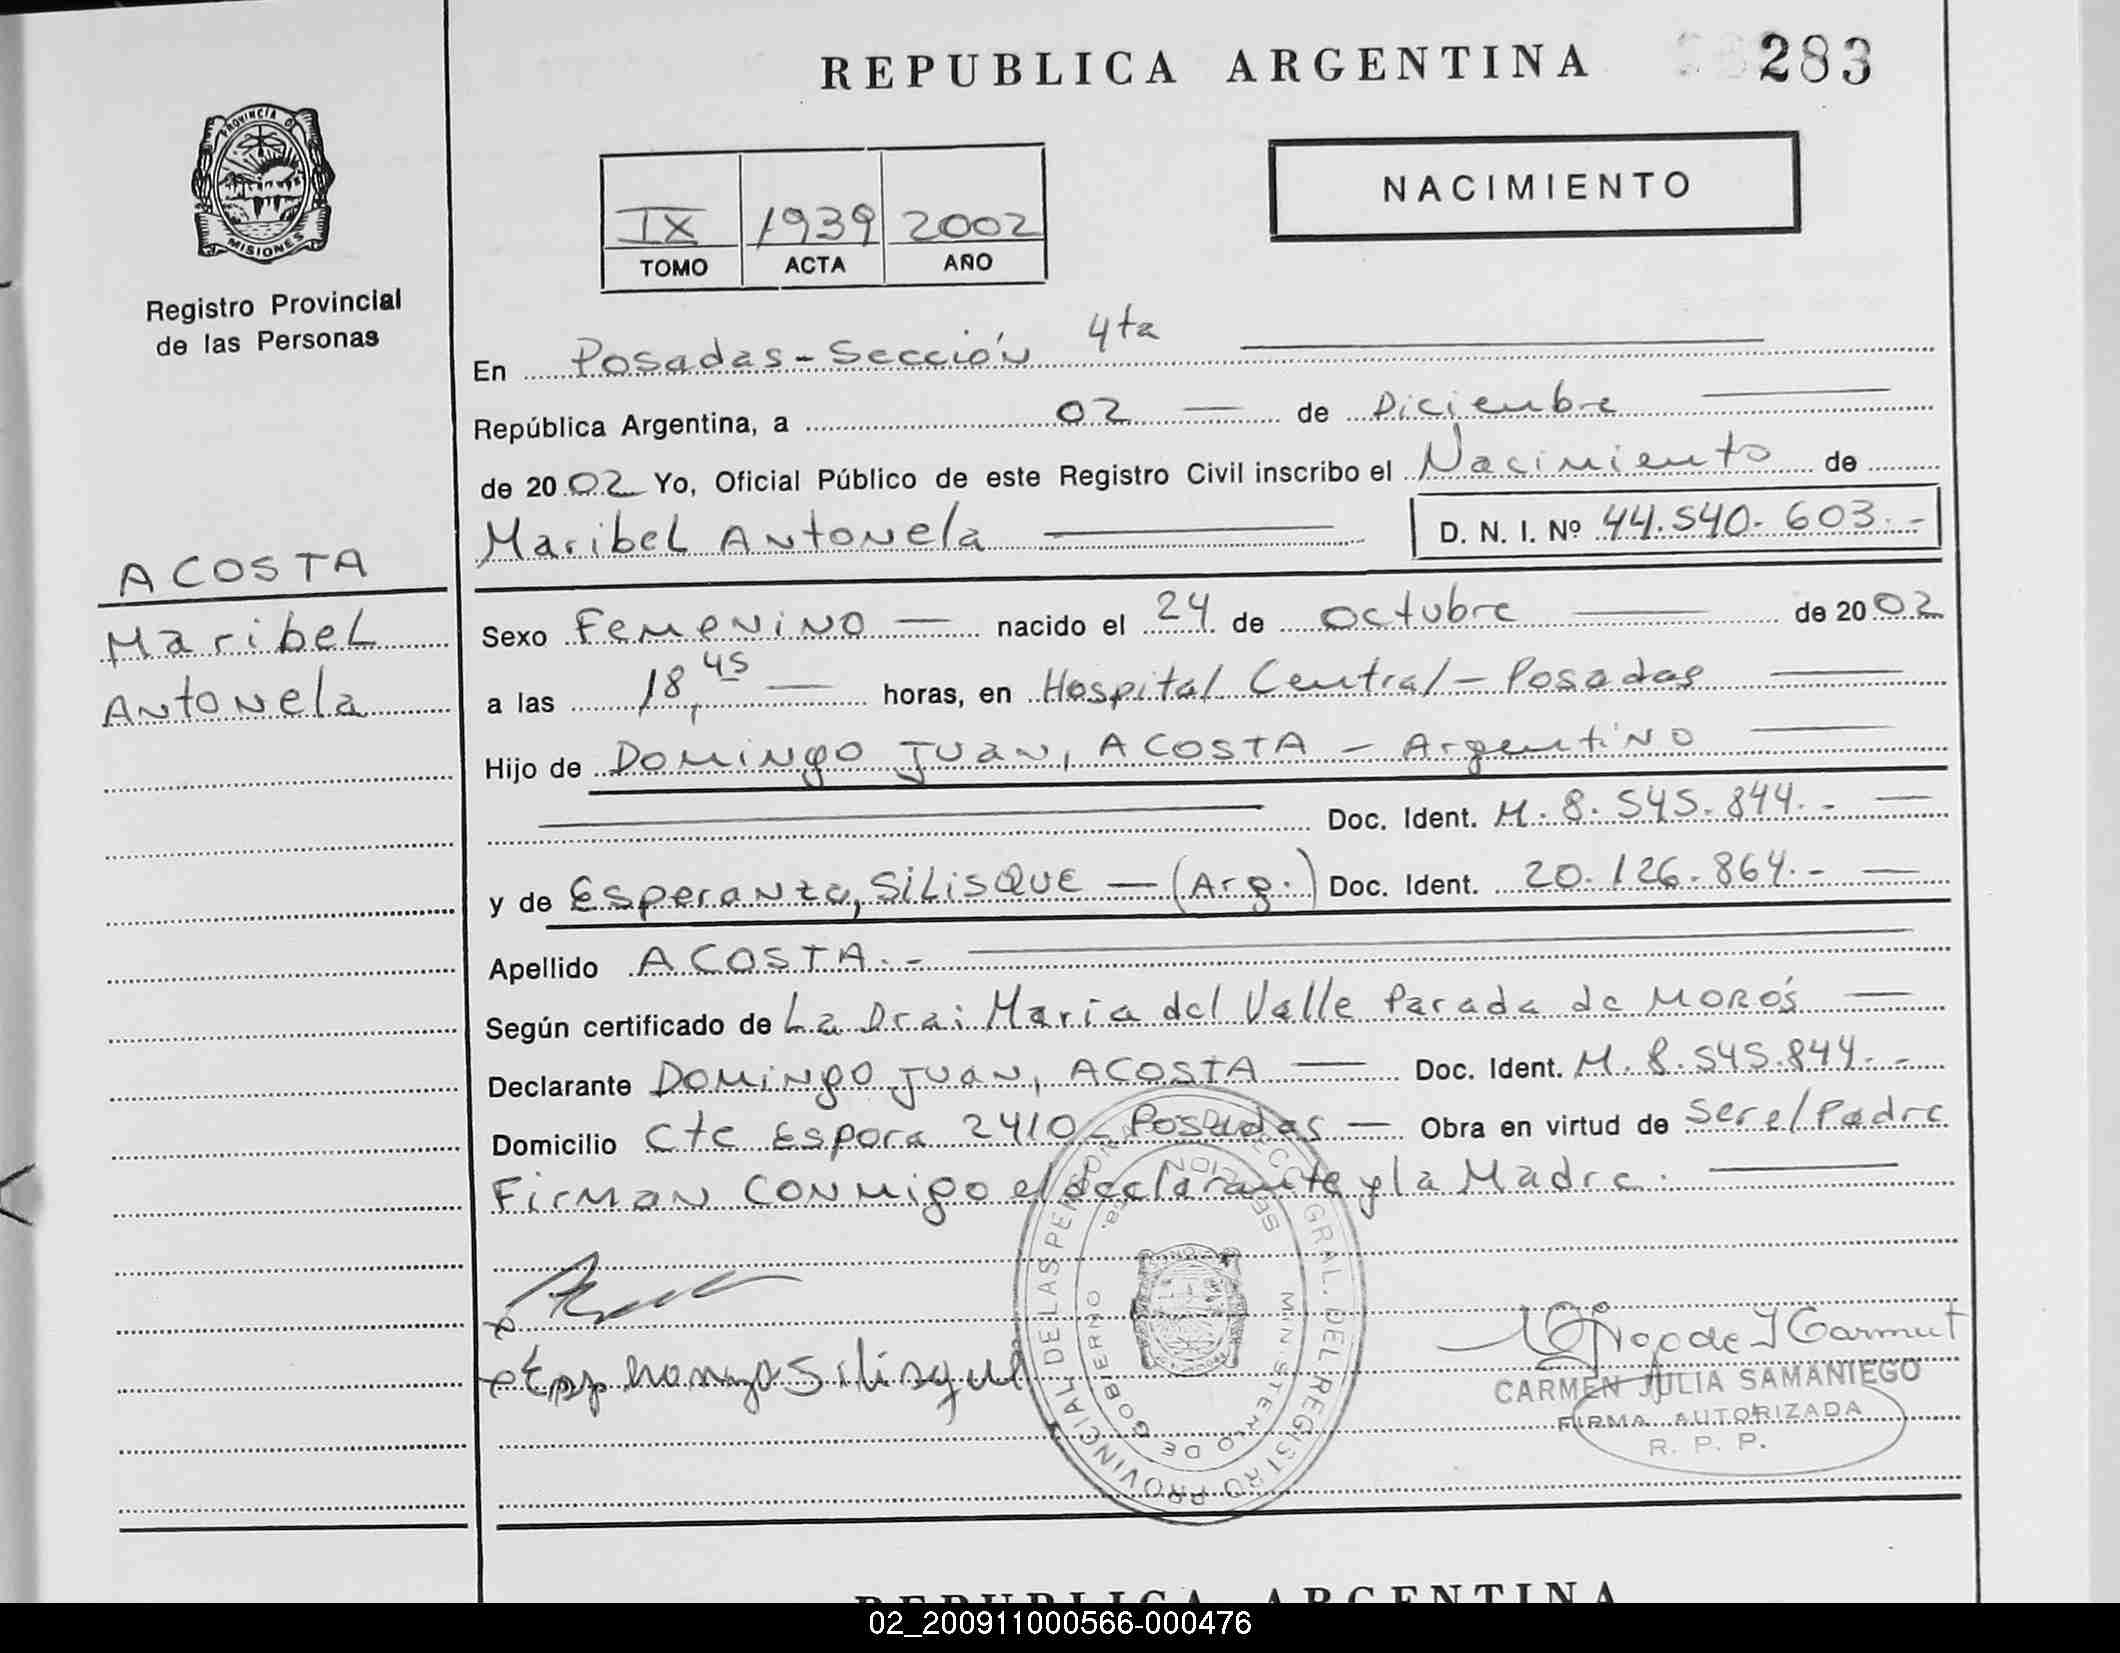 REPUBLICA ARGENTINA
283
PROVINCIA D
MISIONES
Registro Provincial
de las Personas
NACIMIENTO
IX 1939 2002
TOMO ACTA AÑO
En Posadas - Sección 4ta
República Argentina, a 02 de Diciembre
de 2002 Yo, Oficial Público de este Registro Civil inscribo el Nacimiento de
Maribel Antonela D. N. I. Nº 44.540.603.-
ACOSTA
Maribel
Antonela
Sexo Femenino nacido el 24 de octubre de 2002
a las 18,45 horas, en Hospital Central - Posadas
Hijo de Domingo Juan, ACOSTA - Argentino
Doc. Ident. M. 8.545.844.-
y de Esperanza, SILISQUE - (Arg.) Doc. Ident. 20.126.864.-
Apellido ACOSTA.-
Según certificado de La Dra: María del Valle Parada de MOROS
Declarante Domingo Juan, ACOSTA Doc. Ident. M. 8.545.844.-
Domicilio Cte Espora 2410 - Posadas - Obra en virtud de ser el Padre
Firman conmigo el declarante y la Madre.
Esperanza Silisque
GRAL. DEL REGISTRO PROVINCIAL DE LAS PERSON
SECCION
MINISTERIO DE GOBIERNO
CARMEN JULIA SAMANIEGO
FIRMA AUTORIZADA
R. P. P.
REPUBLICA ARGENTINA
02_200911000566-000476